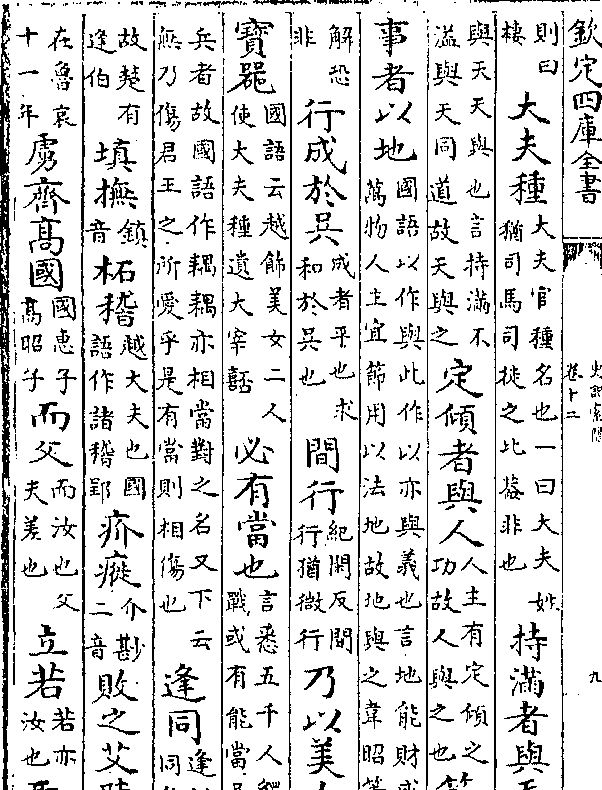 欽定四庫全書 史記索隱 卷十二 九
則曰棲 大夫種 大夫官種名也一曰大夫姓猶司馬司徒之比蓋非也 持滿者與天
與天天與也言持滿不溢與天同道故天與之 定傾者與人 人主有定傾之功故人與之也 節
事者以地 國語以作與此作以亦與義也言地能財成萬物人主宜節用以法地故地與之韋昭等
解恐非 行成於吳 成者平也求和於吳也 間行 紀閑反間行猶微行 乃以美人
寶器 國語云越飾美女二人使大夫種遺大宰嚭 必有當也 言悉五千人戰或有能當
兵者故國語作耦耦亦相當對之名又下云無乃傷君王之所愛乎是有當則相傷也 逢同 逢同
故楚有逢伯 填撫 鎮音 柘稽 越大夫也國語作諸稽郢 疥癬 介尠二音 敗之艾陵
在魯哀十一年 虜齊高國 國惠子高昭子 而父 而汝也父夫差也 立若 若亦汝也